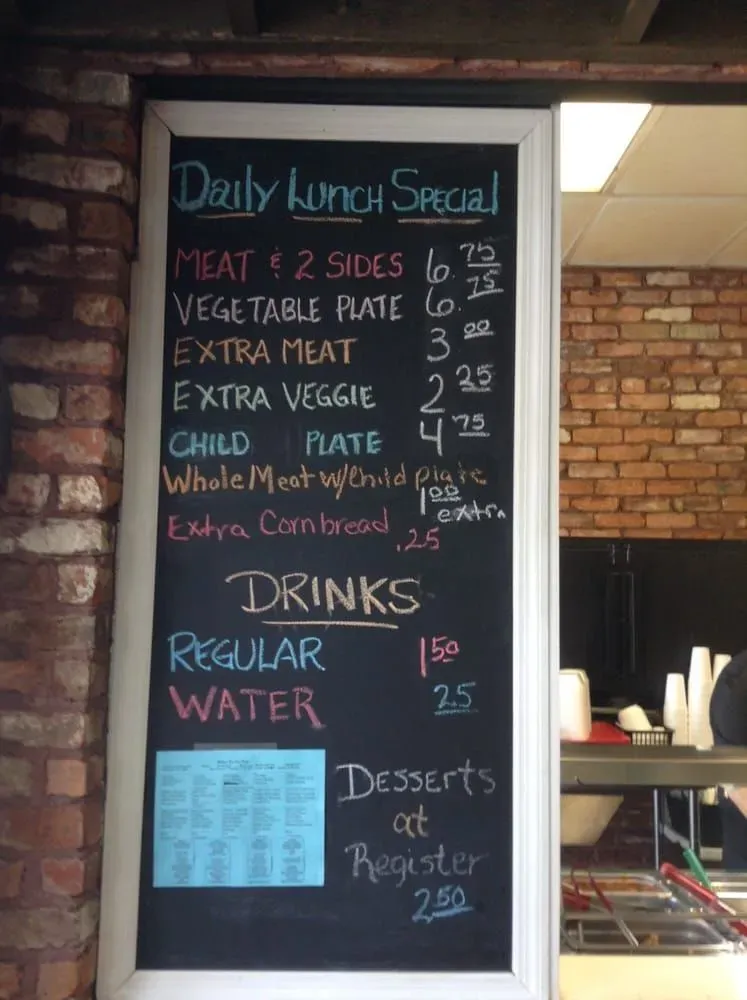 Daily Lunch Special
MEAT & 2 SIDES 6.75
VEGETABLE PLATE 6.75
EXTRA MEAT 3 00
EXTRA VEGGIE 2 25
CHILD PLATE 4 75
Whole Meat w/Child plate
1 00 extra
Extra Cornbread .25
DRINKS
REGULAR 1 50
WATER 25
Desserts
at
Register
2.50